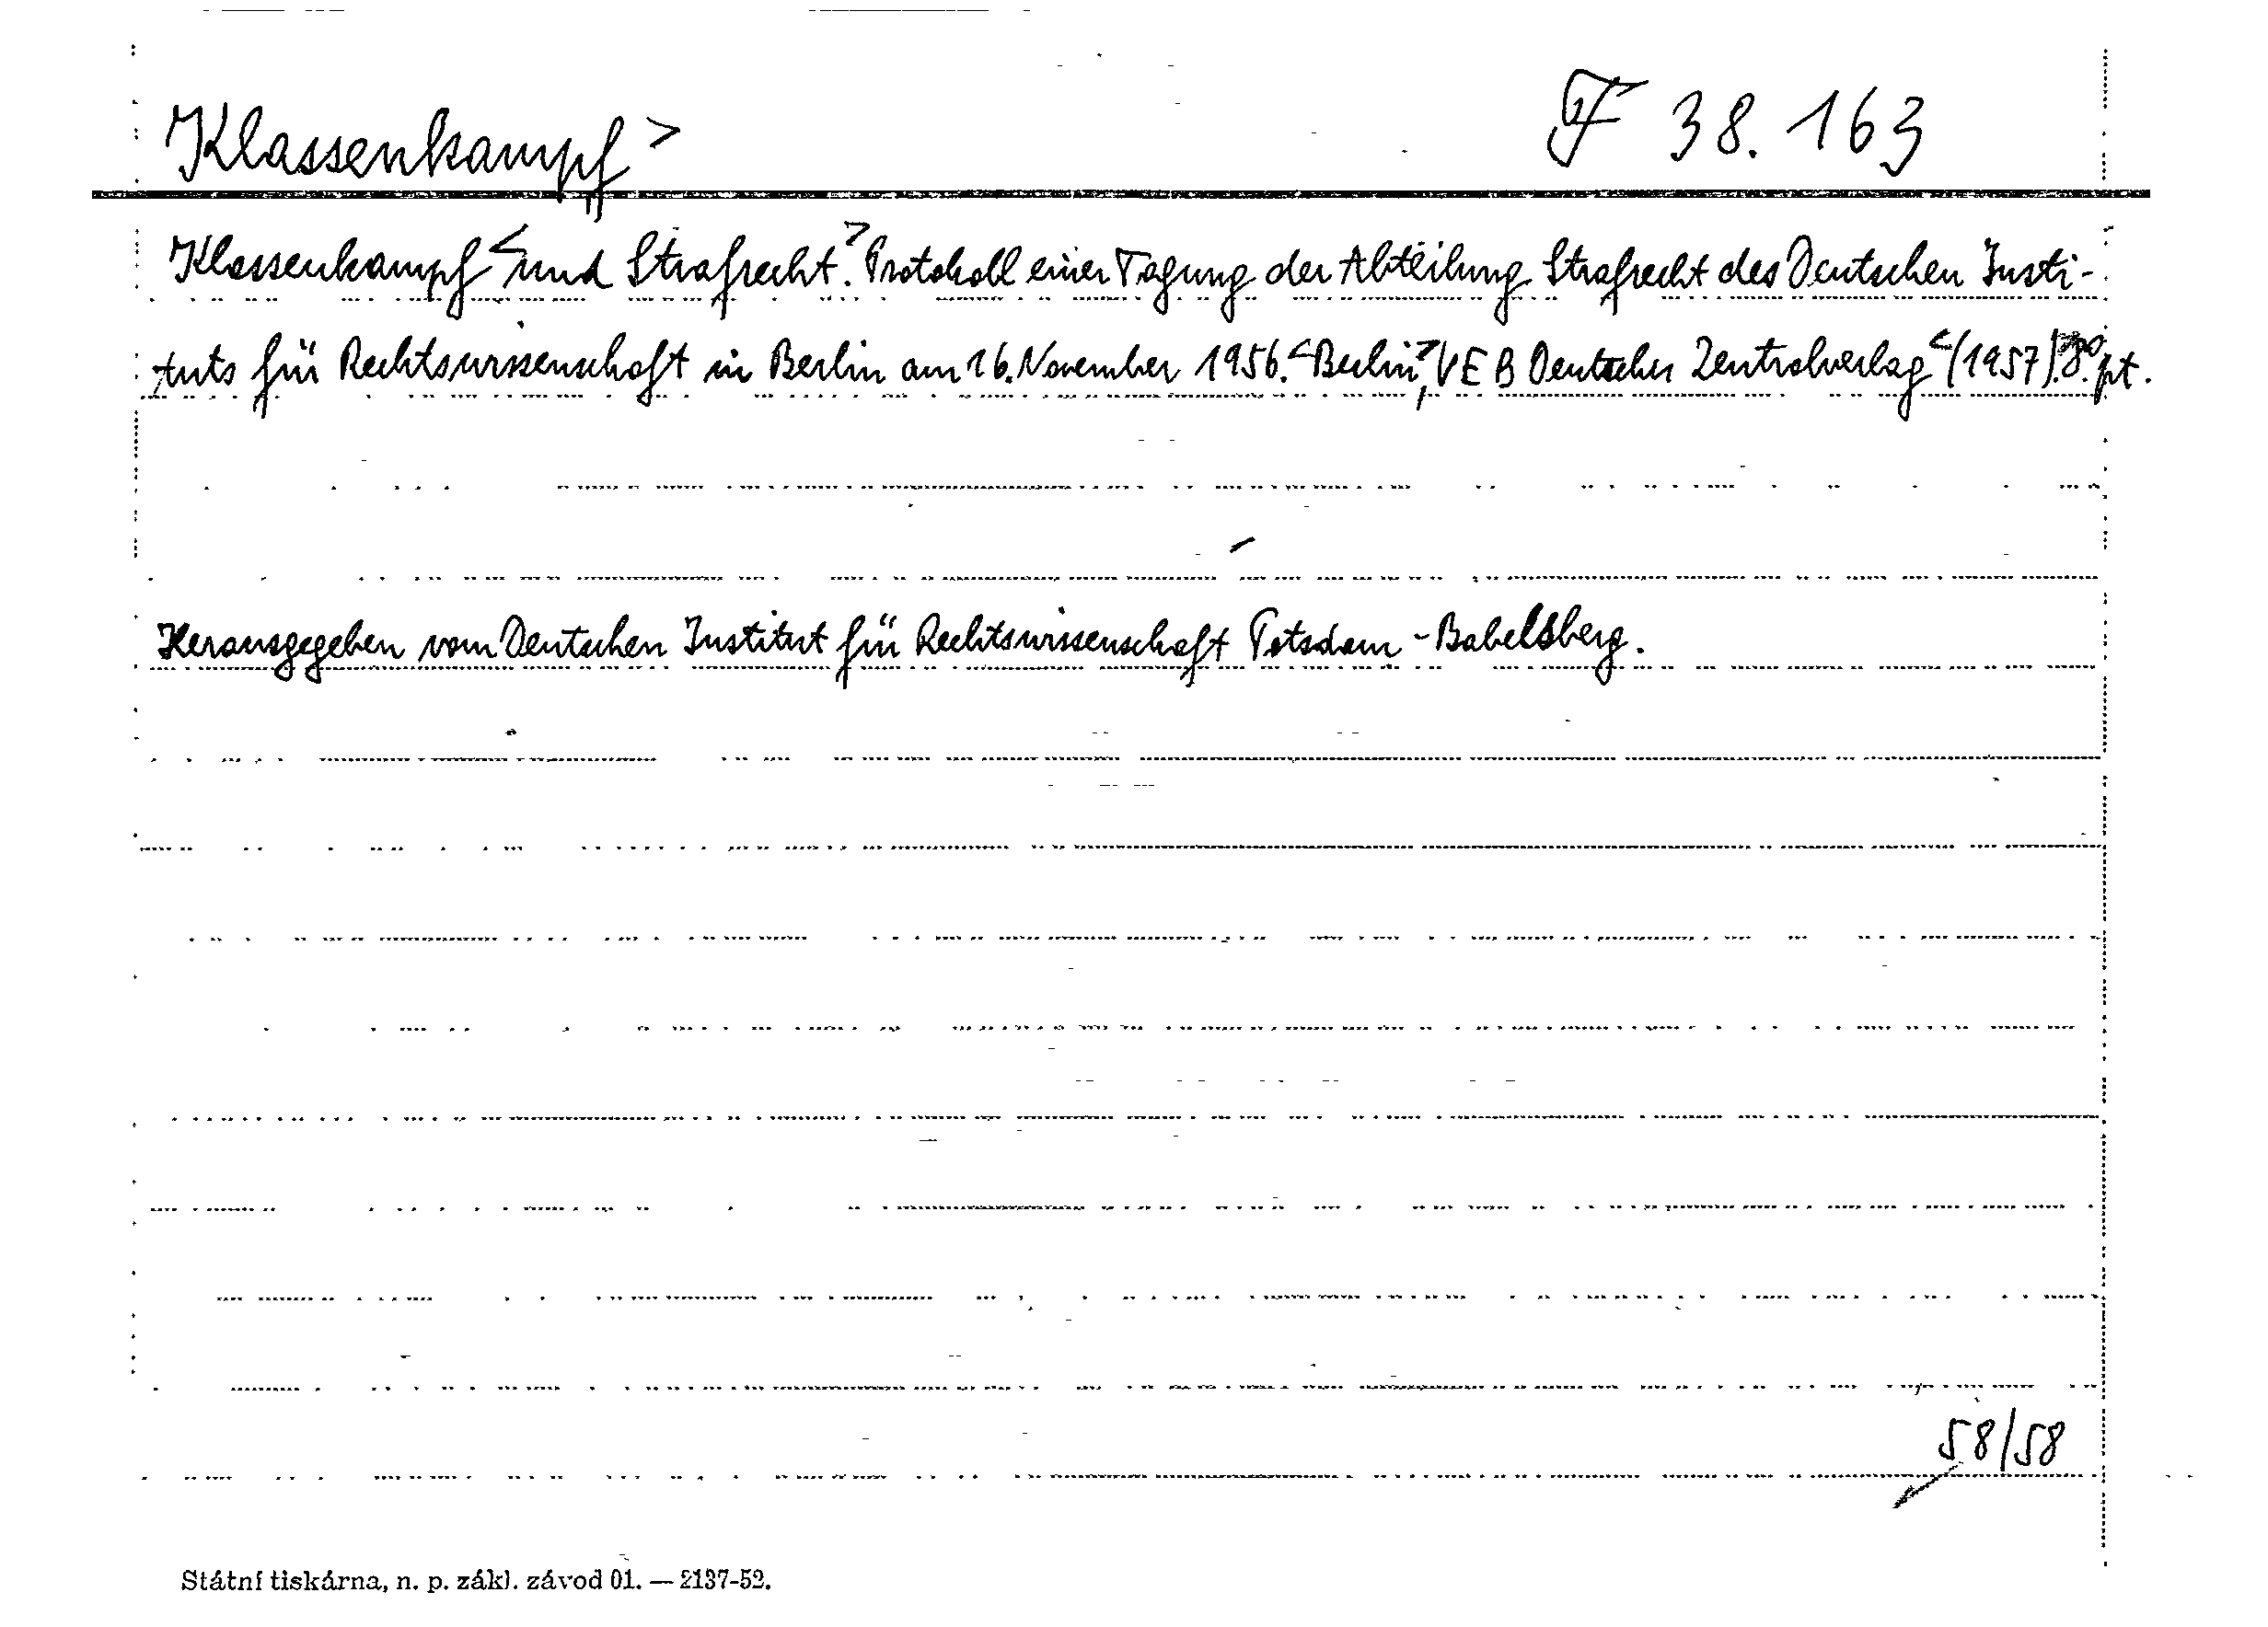 Klassenkampf >
F 38.163
Klassenkampf < und Strafrecht. > Protokoll einer Tagung der Abteilung Strafrecht des Deutschen Insti-
tuts für Rechtswissenschaft in Berlin am 16. November 1956. < Berlin, > VEB Deutscher Zentralverlag < (1957). 8° pt.
Herausgegeben vom Deutschen Institut für Rechtswissenschaft Potsdam-Babelsberg.
58/58
Státní tiskárna, n. p. zákl. závod 01. — 2137-52.